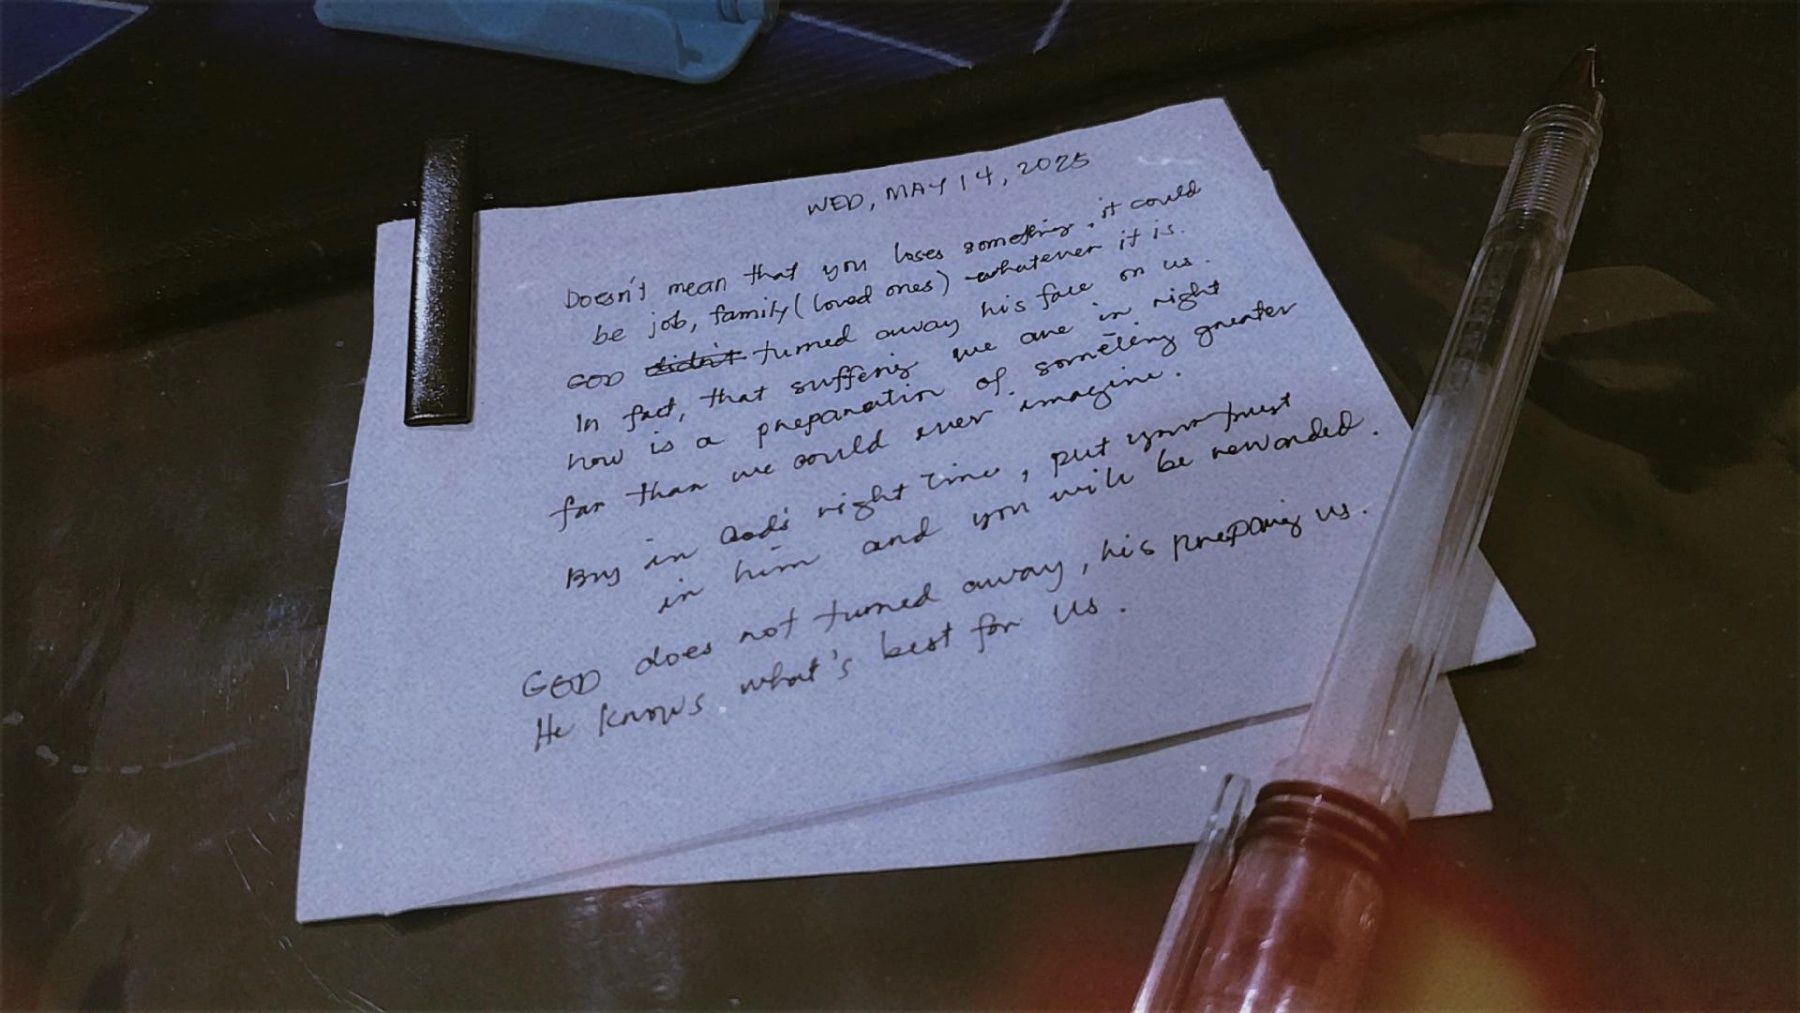 WED, MAY 14, 2025
Doesn't mean that you loses something, it could
be job, family (loved ones) whatever it is.
GOD didn't turned away his face on us.
In fact, that suffering we are in right
now is a preparation of something greater
far than we could ever imagine.
But in God's right time, put your trust
in him and you will be rewarded.
GOD does not turned away, his preparing us.
He knows what's best for us.